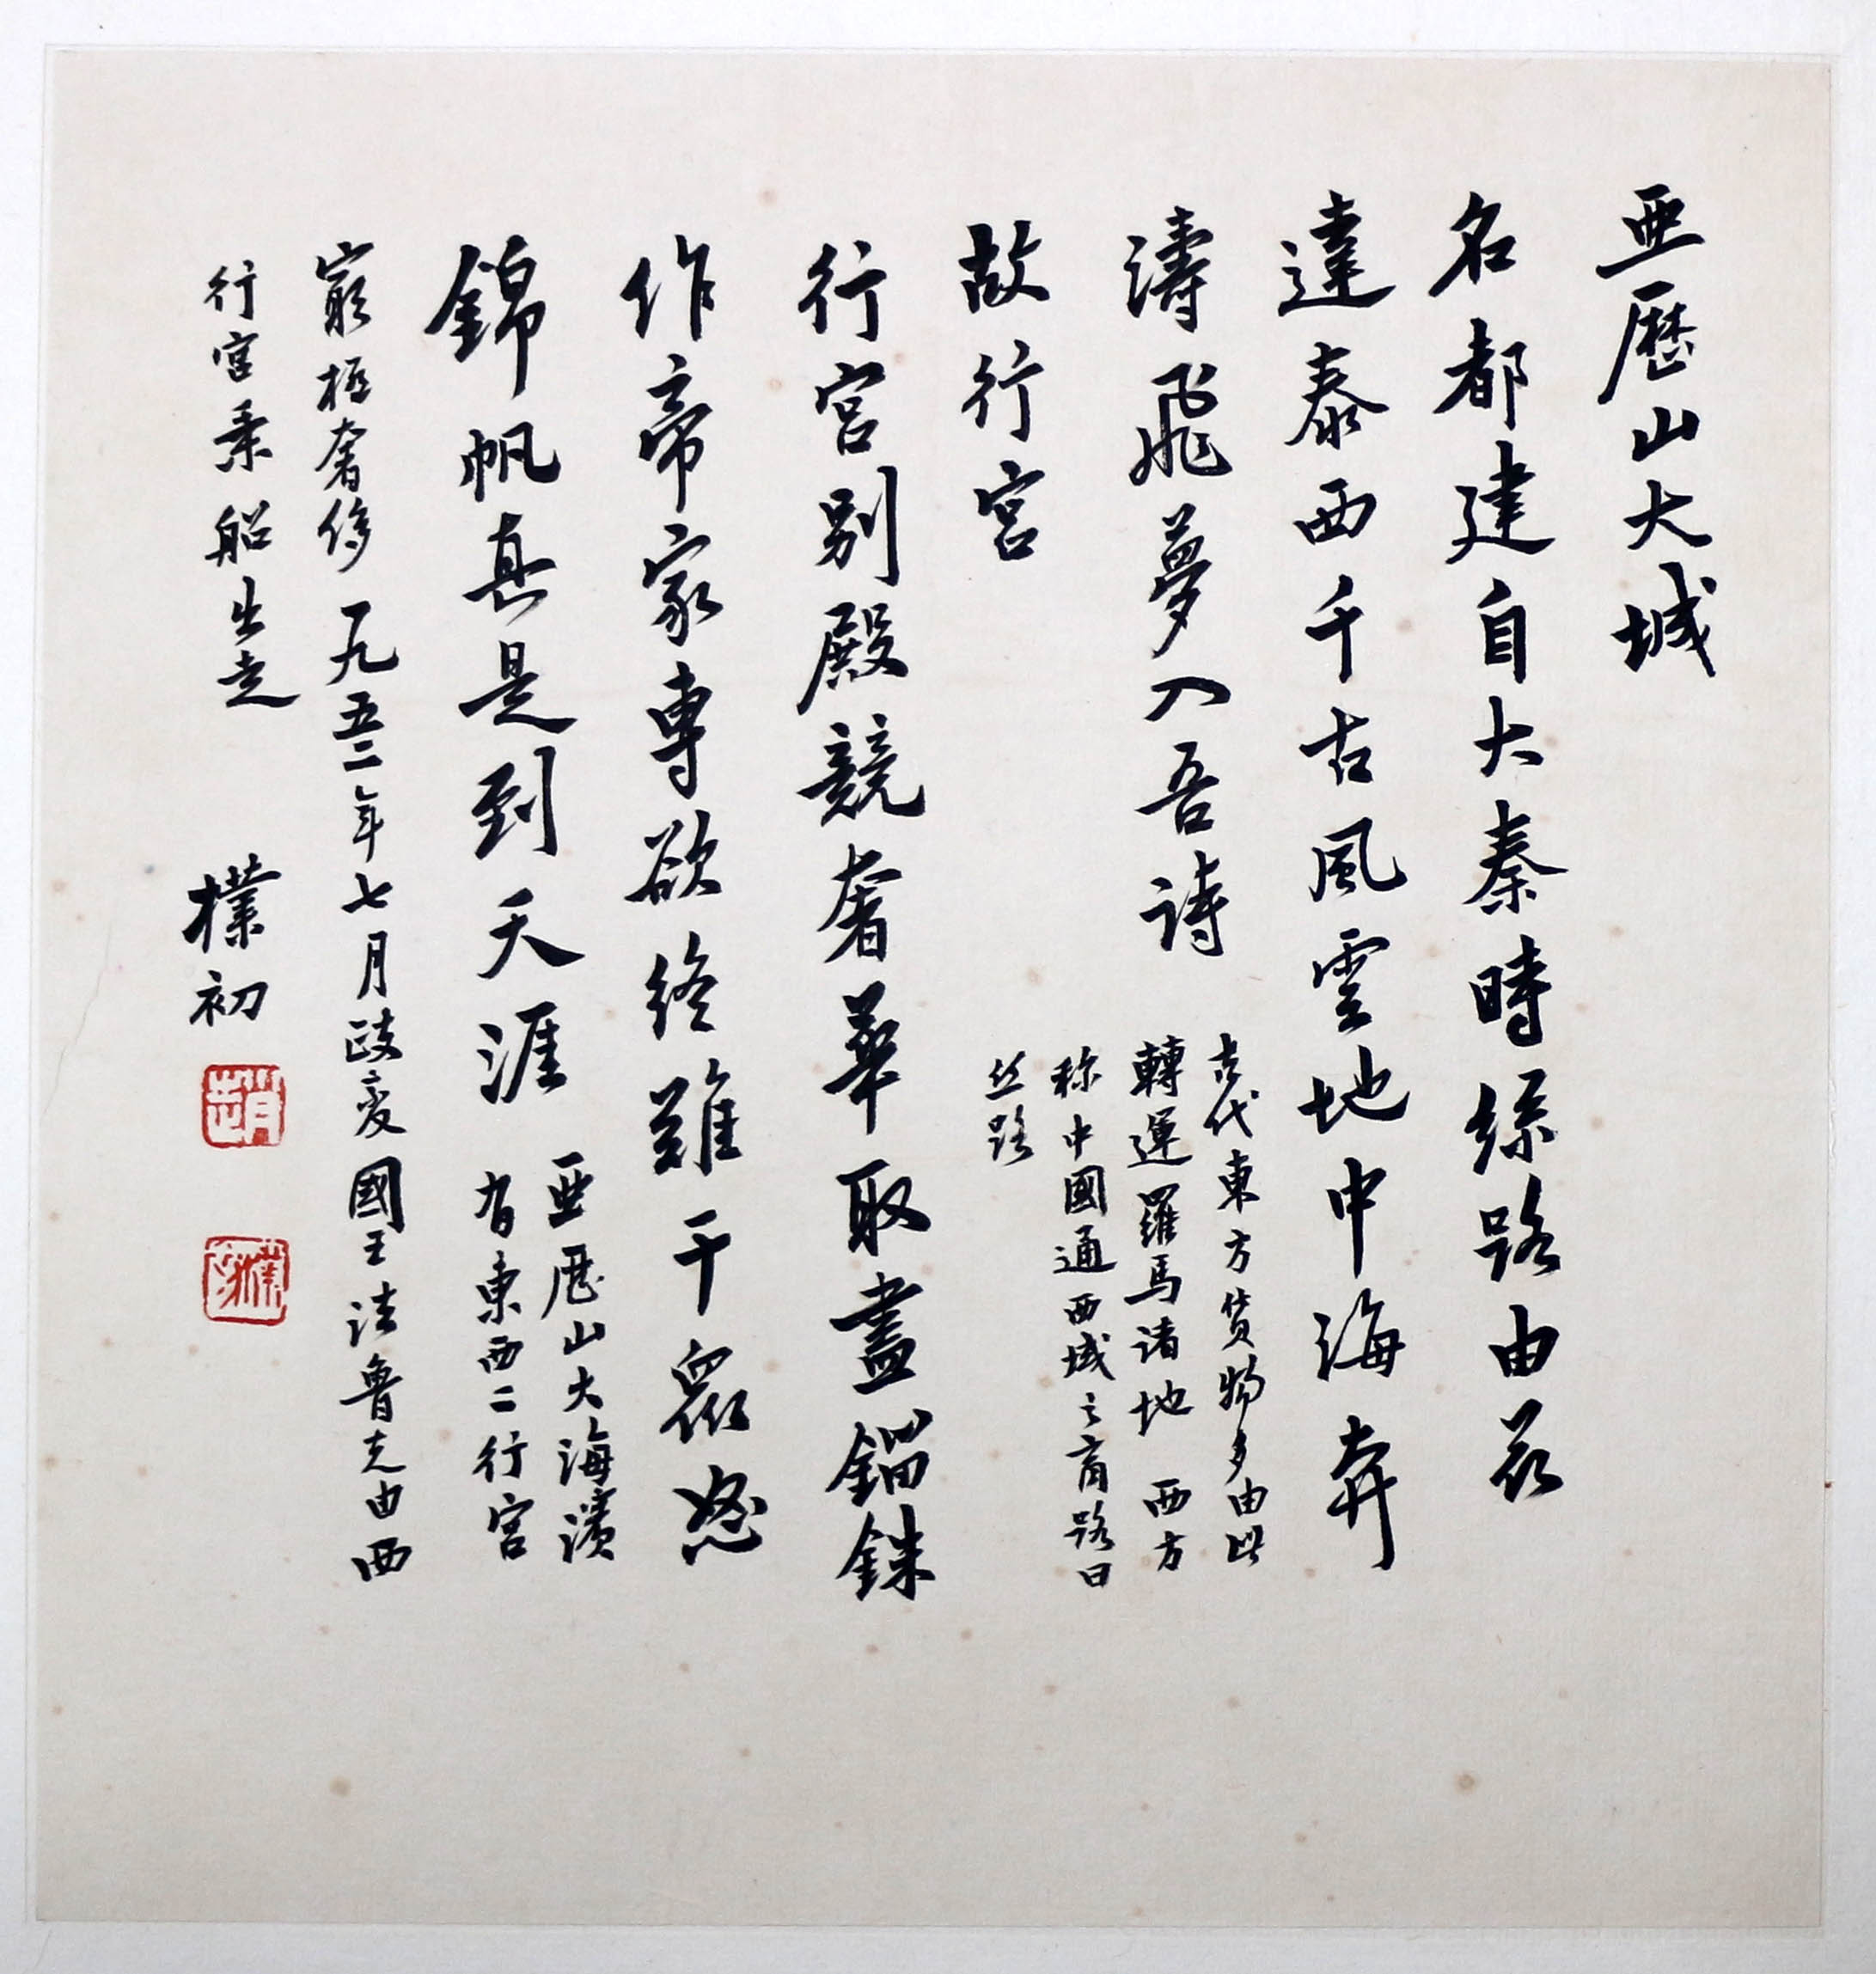 亜歷山大城
名都建自大秦時絲路由茲
達泰西千古風雲地中海奔
濤飛夢入吾詩
古代東方货物多由此
轉運羅馬诸地 西方
称中國通西域之商路曰
丝路
故行宮
行宮別殿競奢華取盡錙銖
作帝家專欲終難干衆怒
錦帆真是到天涯
亜歷山大海濱
有東西二行宮
窮極奢侈一九五二年七月政变國王法魯克由西
行宮乘船出走
樸初
趙
樸初